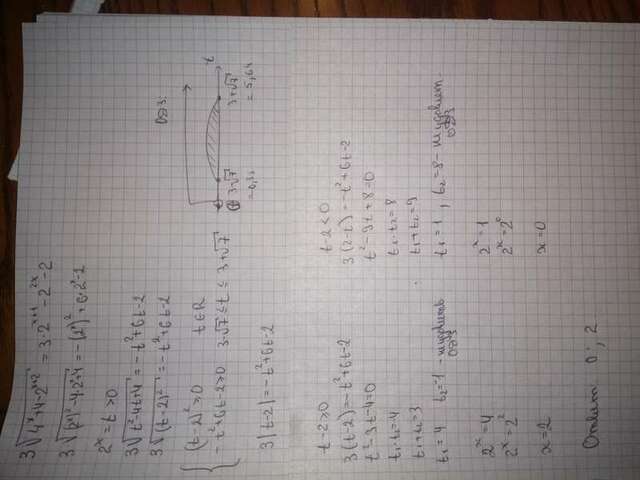 3√(4ˣ+4-2ˣ⁺²) = 3·2ˣ⁺¹-2²ˣ-2
3√((2ˣ)²-4·2ˣ+4) = -(2ˣ)²+6·2ˣ-2
2ˣ = t > 0
3√(t²-4t+4) = -t²+6t-2
3√((t-2)²) = -t²+6t-2
ОДЗ:
{ (t-2)² ≥ 0 t ∈ R
-t²+6t-2 ≥ 0 3-√7 ≤ t ≤ 3+√7
t
0 3-√7 3+√7
=0,35 = 5,64
3|t-2| = -t²+6t-2
t-2 ≥ 0
3(t-2) = -t²+6t-2
t²-3t-4=0
t₁·t₂=-4
t₁+t₂=3
t₁=4 t₂=-1 - не удовлеть
ОДЗ
2ˣ=4
2ˣ=2²
x=2
t-2 < 0
3(2-t) = -t²+6t-2
t²-9t+8=0
t₁·t₂=8
t₁+t₂=9
t₁=1, t₂=8 - не удовлет.
ОДЗ
2ˣ=1
2ˣ=2⁰
x=0
Ответ 0; 2